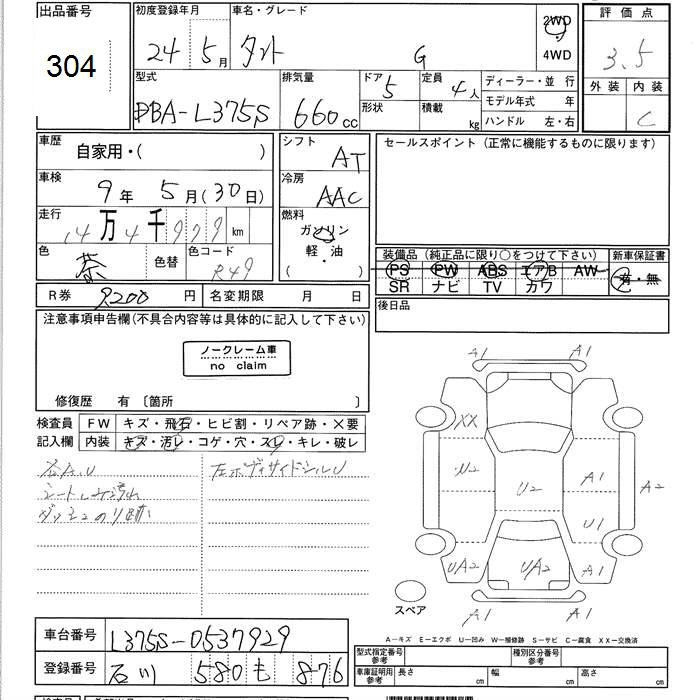 出品番号
304
初度登録年月
24 5月
車名・グレード
タント G
2WD
4WD
評価点
3.5
外装 内装
C
型式
DBA-L375S
排気量
660cc
ドア 5
形状
定員 4人
積載 kg
ディーラー・並 行
モデル年式 年
ハンドル 左・右
車歴
自家用・( )
車検
9年 5月(30日)
走行
14万4千979km
色
茶
色替
色コード
R49
シフト
AT
冷房
AAC
燃料
ガソリン
軽・油
( )
セールスポイント (正常に機能するものに限ります)
装備品 (純正品に限り○をつけて下さい)
新車保証書
PS PW ABS エアB AW
SR ナビ TV カワ
有・無
後日品
R券 9200円
名変期限 月 日
注意事項申告欄(不具合内容等は具体的に記入して下さい)
ノークレーム車
no claim
修復歴 有 〔箇所 〕
検査員
記入欄
FW キズ・飛石・ヒビ割・リペア跡・×要
内装 キズ・汚レ・コゲ・穴・スレ・キレ・破レ
各A.U
シート汚れ
ダッシュのり跡
左ボディサイドシルU
A1 A1
XX
U2
U2
A1
A2
U1
UA2
UA2
A1
A1 A1
スペア
A-キズ E-エクボ U-凹み W-補修跡 S-サビ C-腐食 XX-交換済
車台番号
L375S-0537929
登録番号
石川 580 も 876
型式指定番号
参考
種別区分番号
参考
車庫証明用
参考
長さ cm
幅 cm
高さ cm